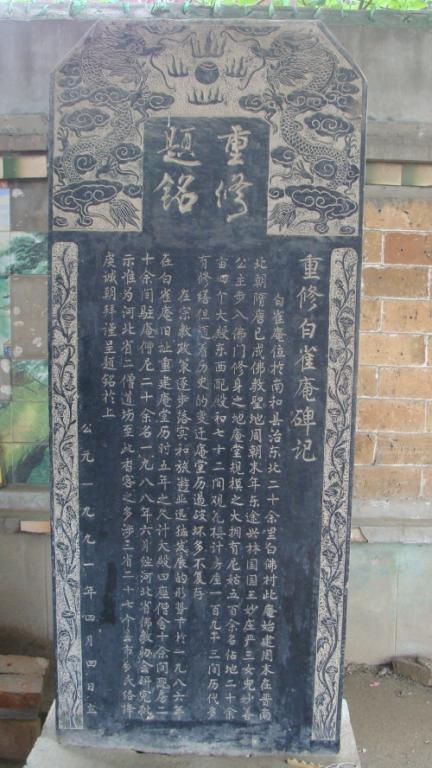 重修
题铭
重修白雀庵碑记
白雀庵位于南和县治东北二十余里白佛村此庵始建周末在晋南
北朝隋唐已成佛教圣地周朝末年东途兴林国国王妙庄严三女儿妙善
公主步入佛门修身之地庵堂规模之大拥有尼姑五百余名佔地二十余
亩四个大殿东西配殿和七十二间观
楼计房屋一百九十三间历代多
有修缮但随着历史的变迁庵堂历遇破坏多不复存
在宗教政策逐步落实和旅游业迅猛发展的形势下于一九八六年
在白雀庵旧址重建庵堂历时五年之久计大殿四座僧舍十余间配房二
十余间驻庵僧尼二十余名一九八八年六月经河北省佛教协会研究批
示准为河北省二僧道场至此香客之多涉三省二十七个县市乡民络绎
虔诚朝拜谨呈题铭于上
公元一九九一年四月四日立